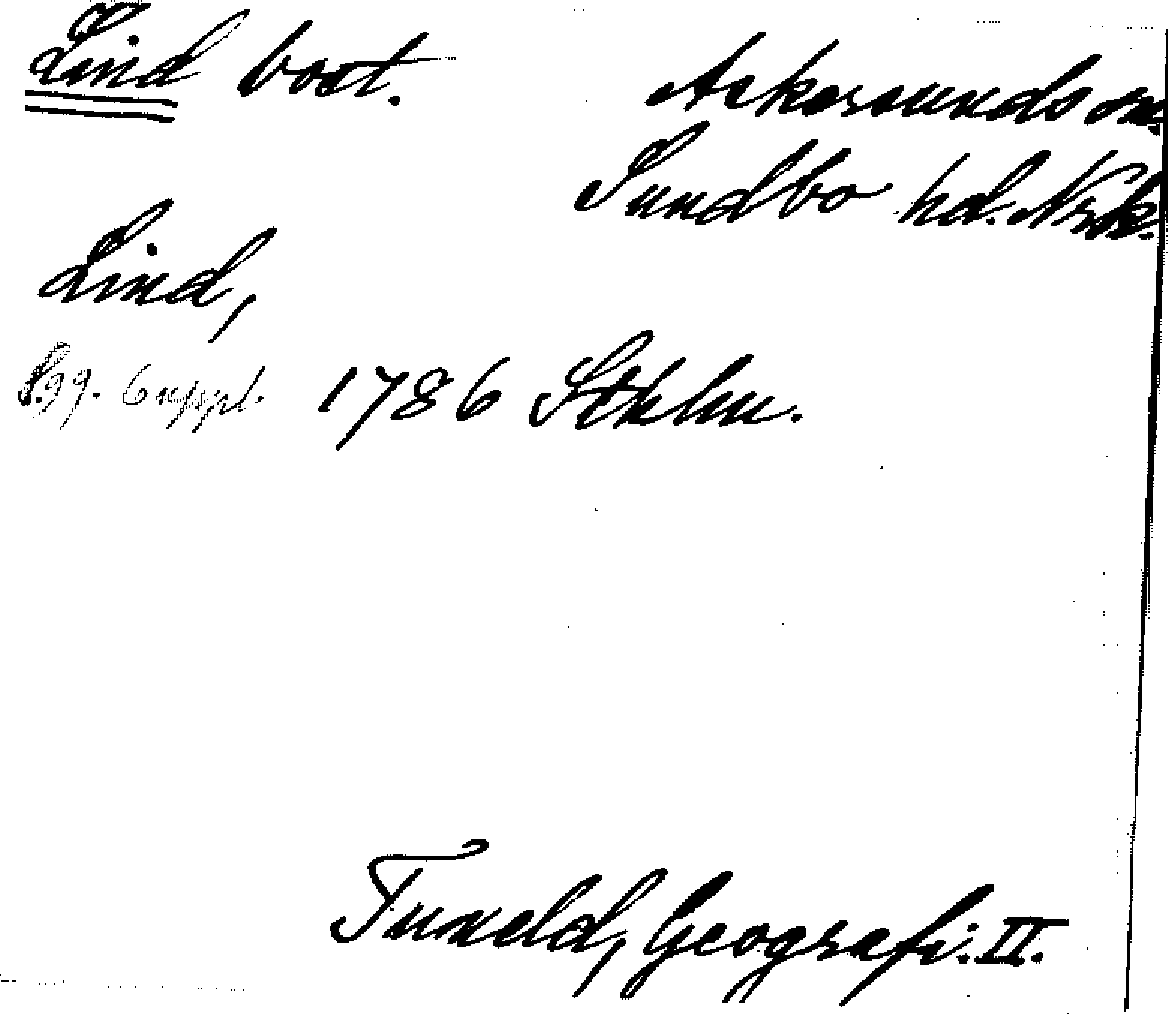 Lind bost. Askersunds sn,
Sundbo hd. Nrk.
Lind,
S. 99. 6 uppl. 1786 Sthlm.
Tuneld, Geografi. II.